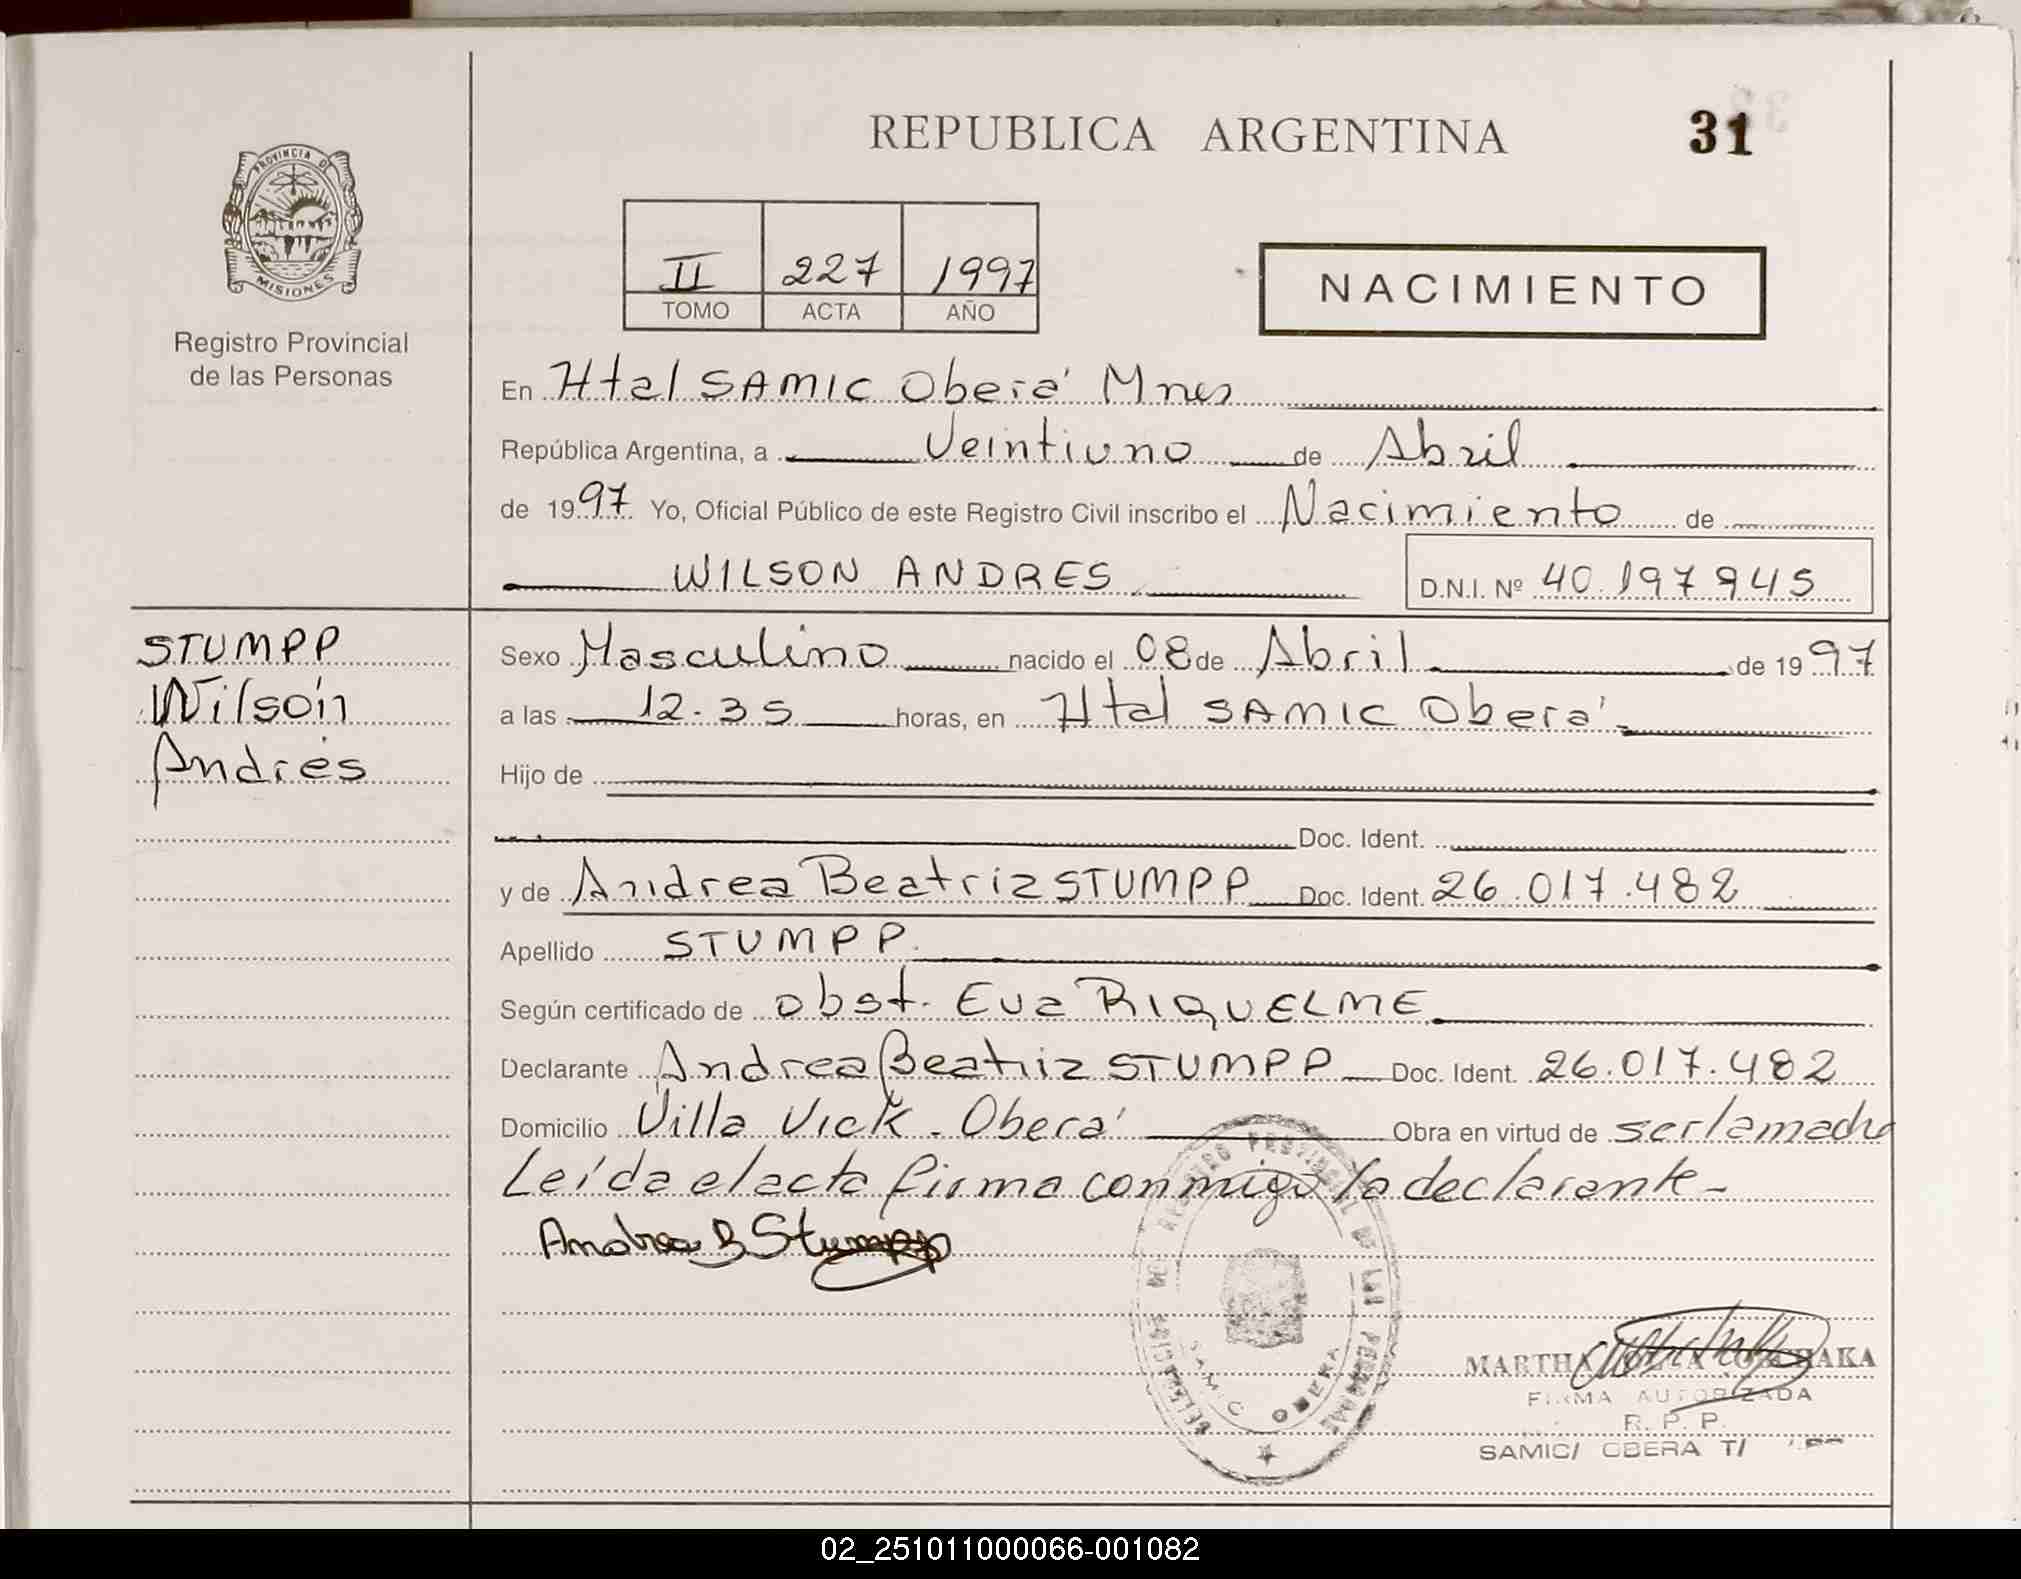 REPUBLICA ARGENTINA 31
PROVINCIA DE
MISIONES
Registro Provincial
de las Personas
II 227 1997
TOMO ACTA AÑO
NACIMIENTO
En Htal SAMIC Oberá Mnes
República Argentina, a Veintiuno de Abril
de 1997 Yo, Oficial Público de este Registro Civil inscribo el Nacimiento de
WILSON ANDRES D.N.I. Nº 40.197945
STUMPP
Wilson
Andrés
Sexo Masculino nacido el 08 de Abril de 1997
a las 12.35 horas, en Htal SAMIC Oberá
Hijo de
Doc. Ident.
y de Andrea Beatriz STUMPP Doc. Ident. 26.017.482
Apellido STUMPP
Según certificado de obst. Eva RIQUELME
Declarante Andrea Beatriz STUMPP Doc. Ident. 26.017.482
Domicilio Villa Vick - Oberá Obra en virtud de ser la madre
Leída el acta firma conmigo la declarante -
Andrea B Stumpp
REGISTRO PROVINCIAL DE LAS PERSONAS
SAMIC OBERA
MARTHA
FIRMA AUTORIZADA
R. P. P.
SAMIC/ OBERA T/
02_251011000066-001082